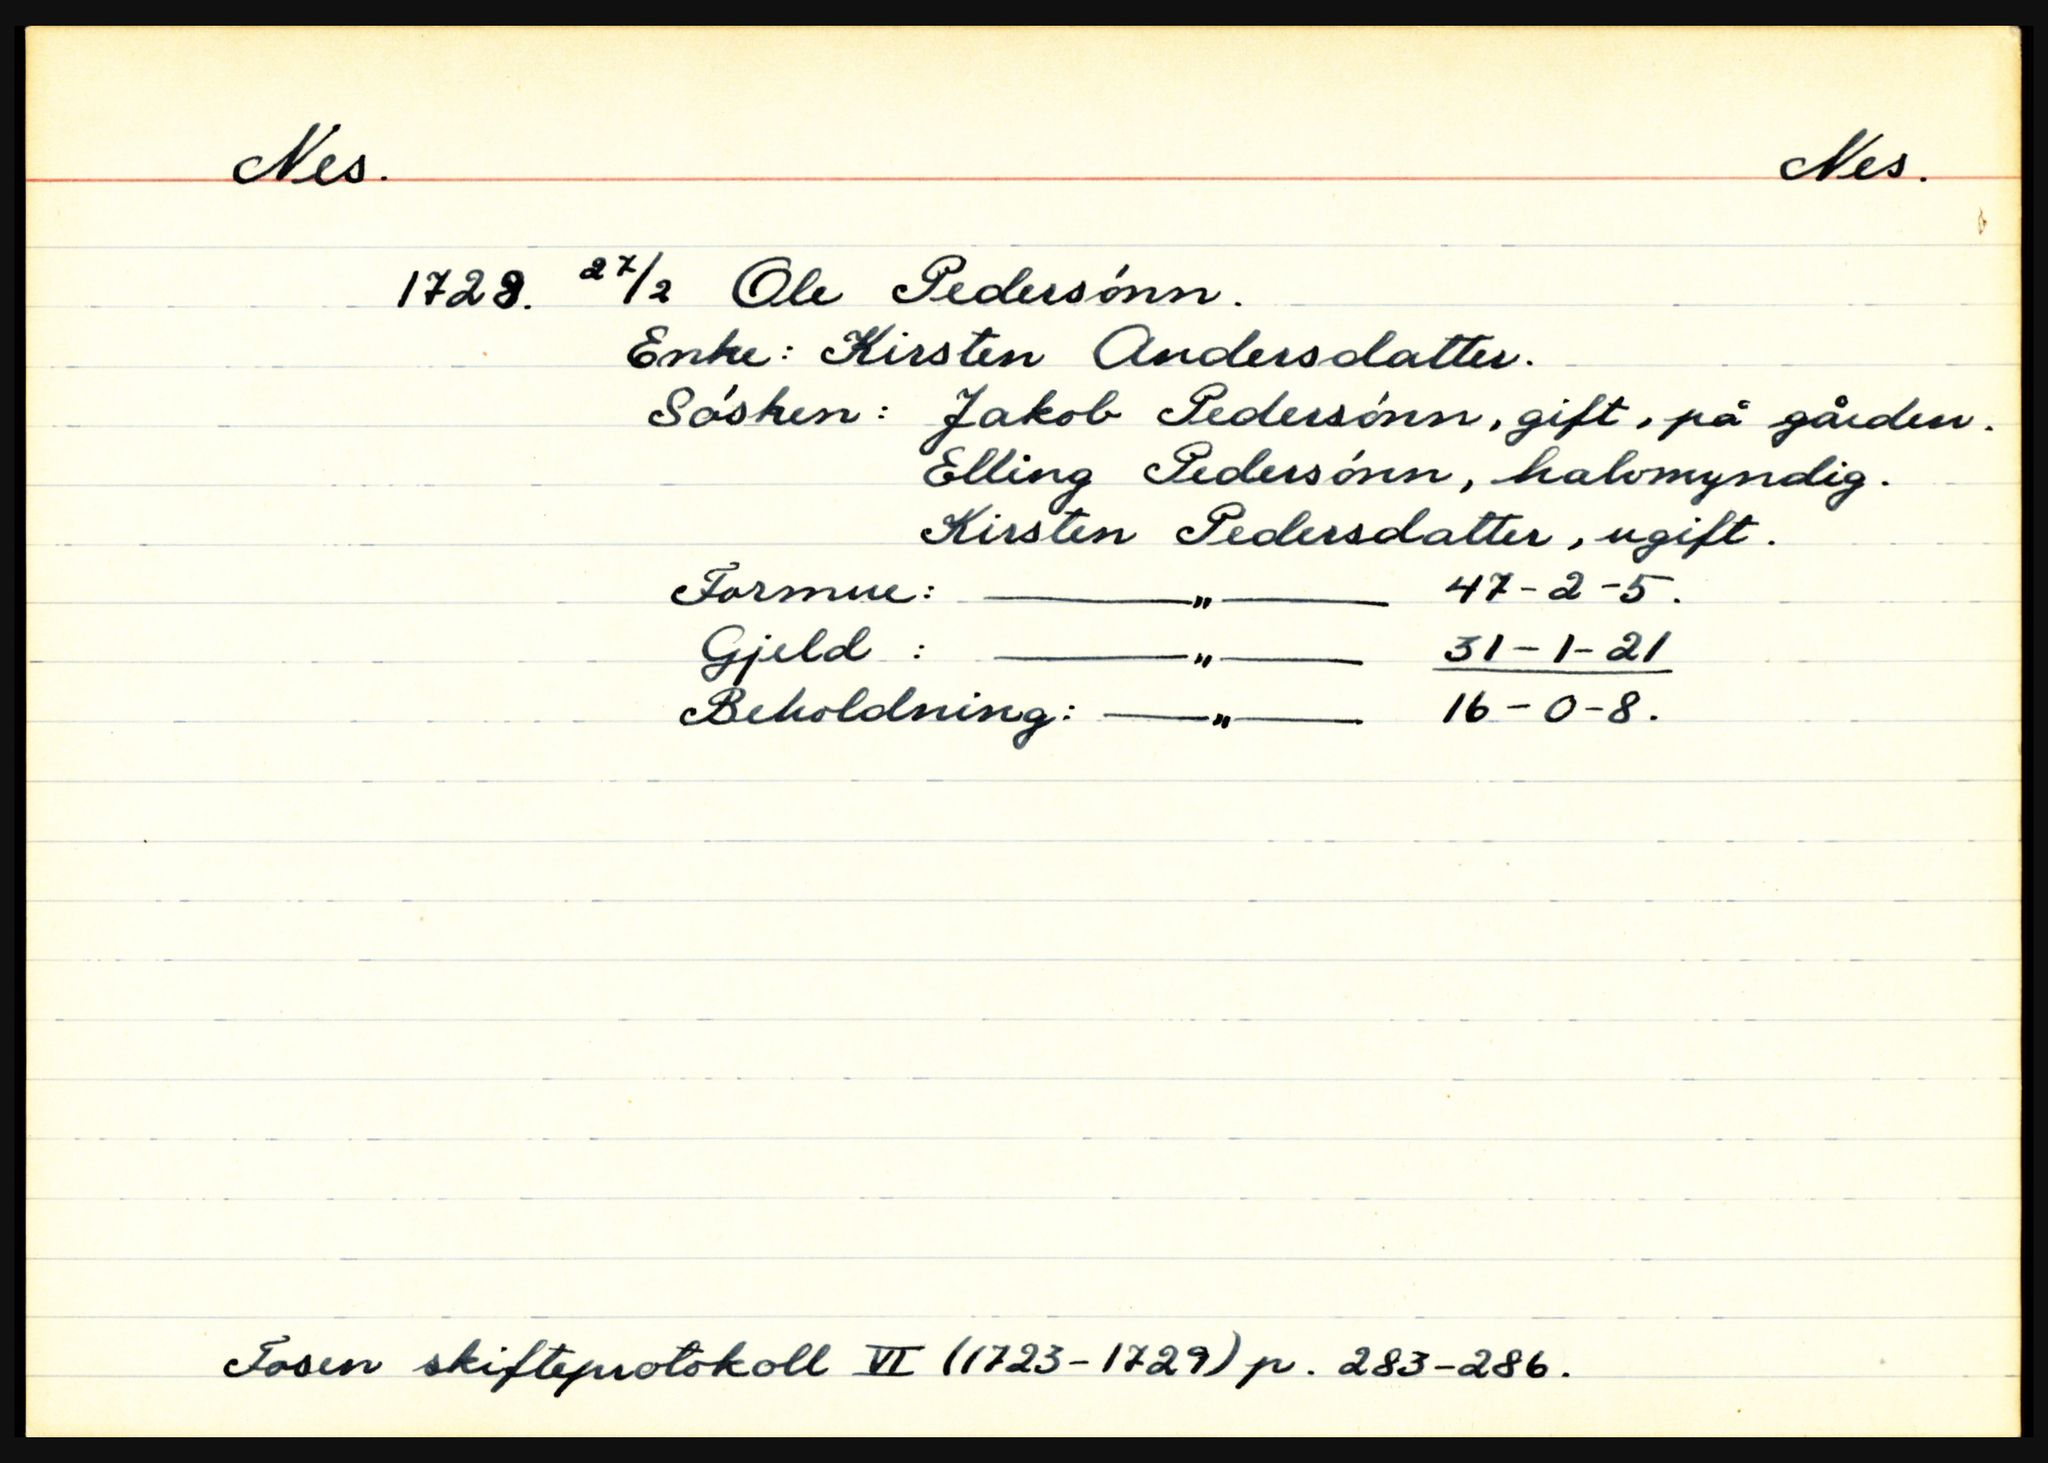 Nes. Nes.
1728. 27/2 Ole Pedersónn.
Enke: Kirsten Andersdatter.
Sósken: Jakob Pedersónn, gift, på gården.
Elling Pedersónn, halvmyndig.
Kirsten Pedersdatter, ugift.
Formue: —„— 47-2-5.
Gjeld : —„— 31-1-21
Beholdning: —„— 16-0-8.
Fosen skifteprotokoll VI (1723-1729) p. 283-286.